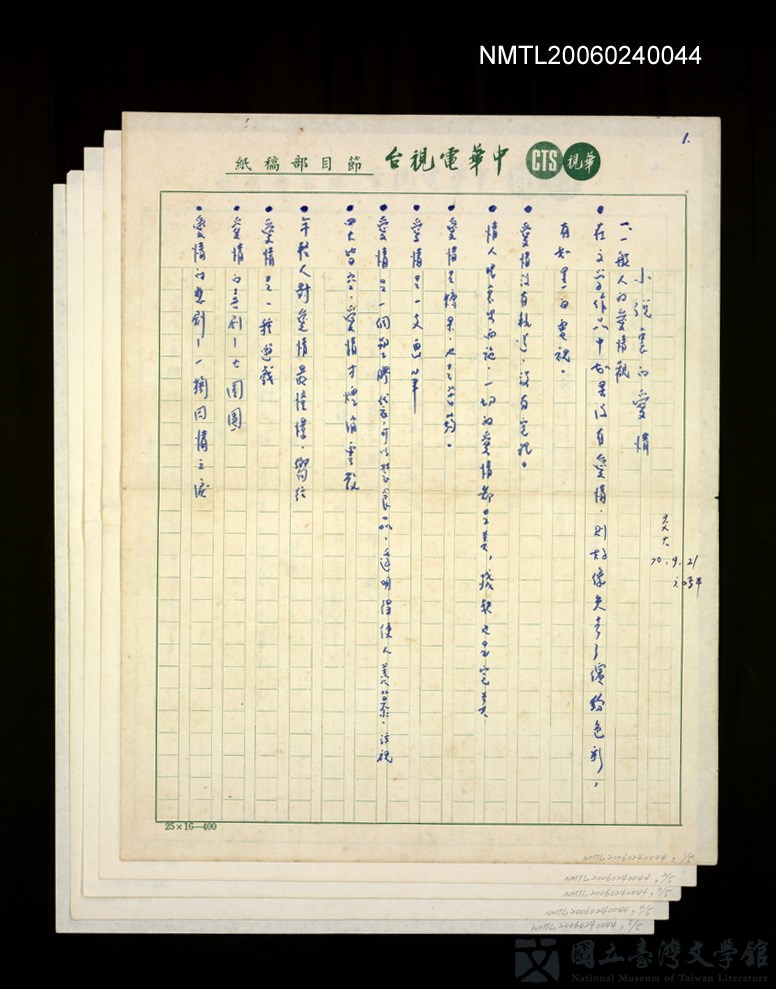 NMTL20060240044
1.
華視 CTS 中華電視台 節目部稿紙
文大
70.9.21
小說裏的愛情
一、一般人的愛情觀
• 在文學作品中如果沒有愛情,則好像失去了繽紛色彩,
有如黑白電視。
• 愛情沒有軌道,沒有定規。
• 情人眼裏出西施,一切的愛情都是美,殘缺也是完美
• 愛情是糖果,也是苦藥。
• 愛情是一支畫筆
• 愛情是一個塑膠代衣,可以裝食品,透明得使人羨慕,注視
• 四大皆空,愛情才煙消雲散
• 年輕人對愛情最憧憬、嚮往
• 愛情是一種遊戲
• 愛情的喜劇—大團圓
• 愛情的悲劇—一掬同情之淚
25×16—400
NMTL20060240044, 1/5
NMTL20060240044, 2/5
NMTL20060240044, 3/5
NMTL20060240044, 4/5
NMTL20060240044, 5/5
國立臺灣文學館
National Museum of Taiwan Literature